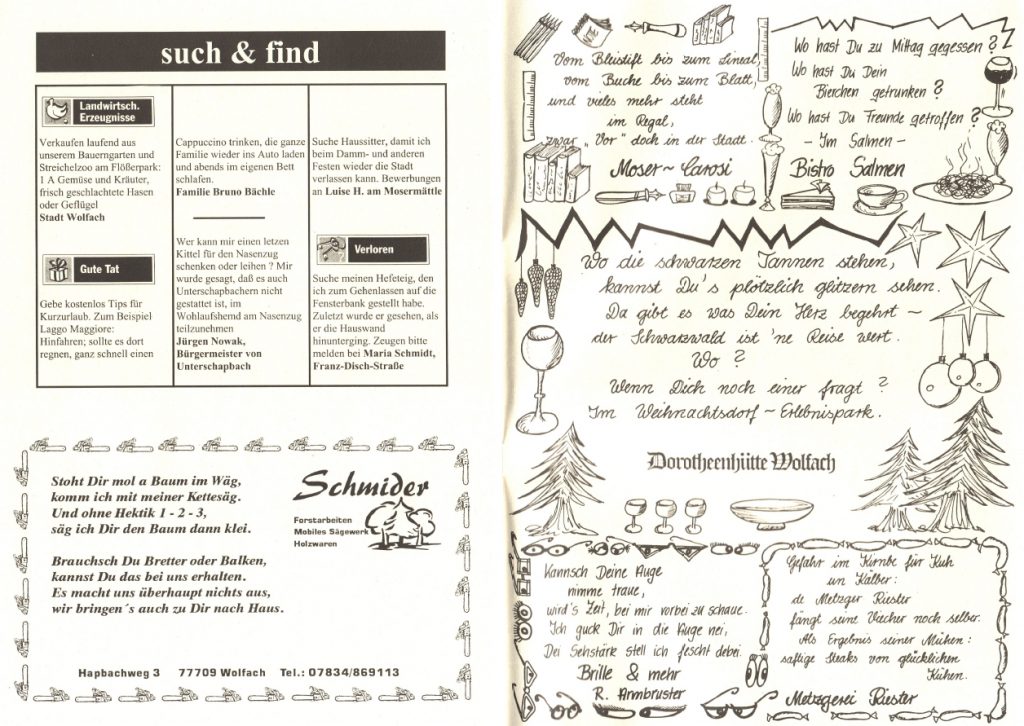 such & find
Landwirtsch.
Erzeugnisse
Verkaufen laufend aus
unserem Bauerngarten und
Streichelzoo am Flößerpark:
1 A Gemüse und Kräuter,
frisch geschlachtete Hasen
oder Geflügel
Stadt Wolfach
Gute Tat
Gebe kostenlos Tips für
Kurzurlaub. Zum Beispiel
Laggo Maggiore:
Hinfahren; sollte es dort
regnen, ganz schnell einen
Cappuccino trinken, die ganze
Familie wieder ins Auto laden
und abends im eigenen Bett
schlafen.
Familie Bruno Bächle
Wer kann mir einen letzen
Kittel für den Nasenzug
schenken oder leihen ? Mir
wurde gesagt, daß es auch
Unterschapbachern nicht
gestattet ist, im
Wohlaufshemd am Nasenzug
teilzunehmen
Jürgen Nowak,
Bürgermeister von
Unterschapbach
Suche Haussitter, damit ich
beim Damm- und anderen
Festen wieder die Stadt
verlassen kann. Bewerbungen
an Luise H. am Mosermättle
Verloren
Suche meinen Hefeteig, den
ich zum Gehenlassen auf die
Fensterbank gestellt habe.
Zuletzt wurde er gesehen, als
er die Hauswand
hinunterging. Zeugen bitte
melden bei Maria Schmidt,
Franz-Disch-Straße
Stoht Dir mol a Baum im Wäg,
komm ich mit meiner Kettesäg.
Und ohne Hektik 1 - 2 - 3,
säg ich Dir den Baum dann klei.
Brauchsch Du Bretter oder Balken,
kannst Du das bei uns erhalten.
Es macht uns überhaupt nichts aus,
wir bringen´s auch zu Dir nach Haus.
Schmider
Forstarbeiten
Mobiles Sägewerk
Holzwaren
Hapbachweg 3 77709 Wolfach Tel.: 07834/869113
Vom Bleistift bis zum Lineal,
vom Buche bis zum Blatt,
und vieles mehr steht
im Regal,
zwar „Vor" doch in der Stadt.
Moser ~ Carosi
Wo hast Du zu Mittag gegessen ?
Wo hast Du Dein
Bierchen getrunken ?
Wo hast Du Freunde getroffen ?
- Im Salmen -
Bistro Salmen
Wo die schwarzen Tannen stehen,
kannst Du's plötzlich glitzern sehen.
Da gibt es was Dein Herz begehrt ~
der Schwarzwald ist 'ne Reise wert.
Wo ?
Wenn Dich noch einer fragt ?
Im Weihnachtsdorf ~ Erlebnispark.
Dorotheenhütte Wolfach
Kannsch Deine Auge
nimme traue,
wird's Zeit, bei mir vorbei zu schaue.
Ich guck Dir in die Auge nei,
Dei Sehstärk stell ich fescht debei.
Brille & mehr
R. Armbruster
Gefahr im Kirnbe für Kuh
un Kälber:
de Metzger Riester
fängt seine Viecher noch selber.
Als Ergebnis seiner Mühen:
saftige Steaks von glücklichen
Kühen.
Metzgerei Riester